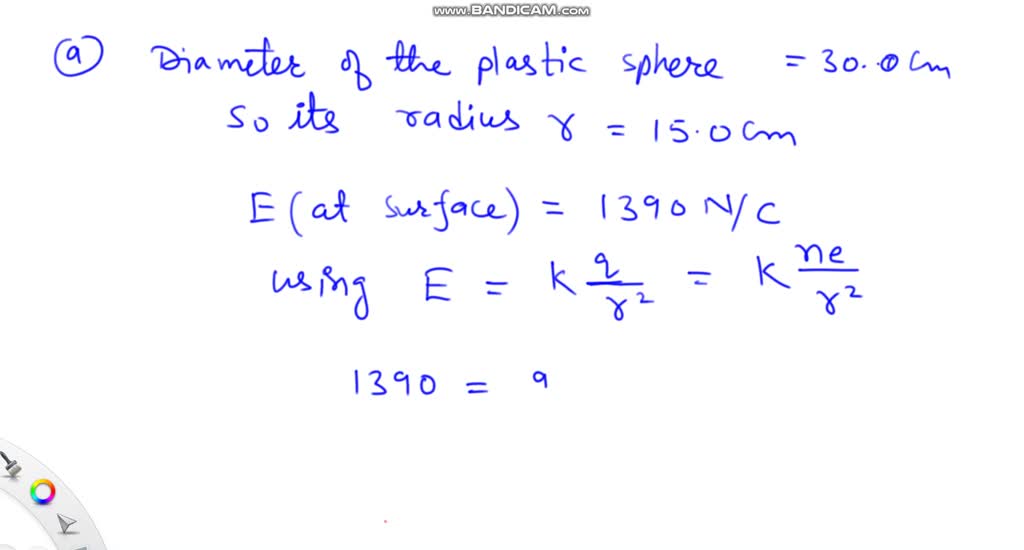 www.BANDICAM.com
(a) Diameter of the plastic sphere = 30.0 cm
so its radius r = 15.0 cm
E (at surface) = 1390 N/C
using E = k q/r² = k ne/r²
1390 = 9